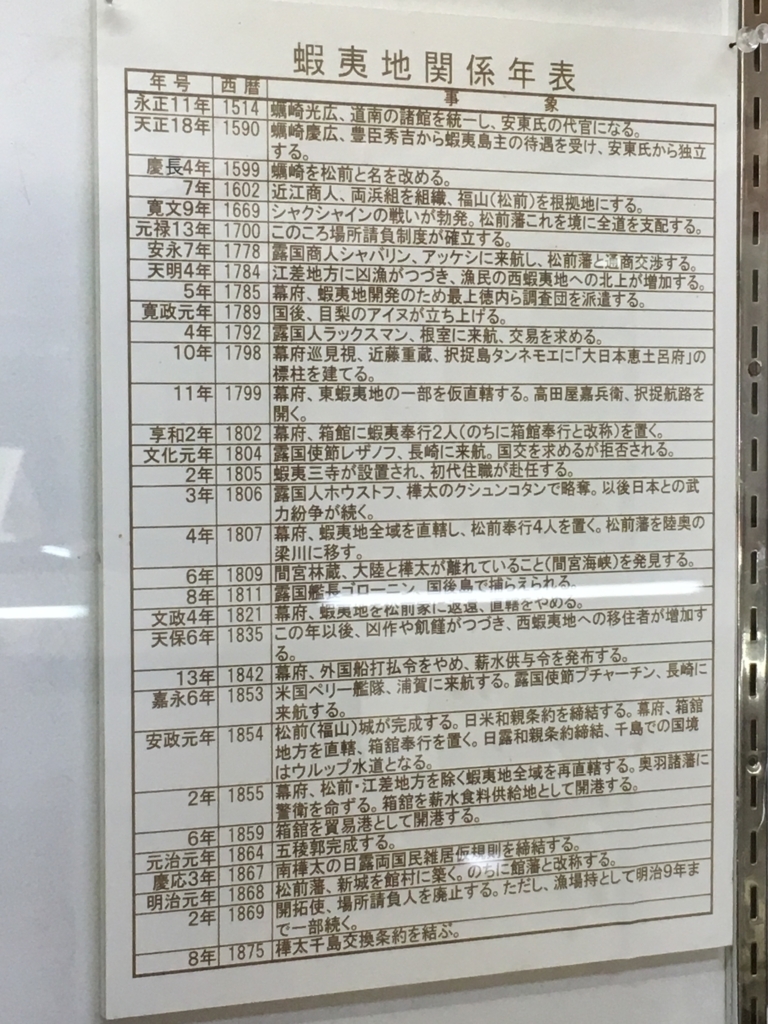 蝦夷地関係年表
年号 西暦 事象
永正11年 1514 蠣崎光広、道南の諸館を統一し、安東氏の代官になる。
天正18年 1590 蠣崎慶広、豊臣秀吉から蝦夷島主の待遇を受け、安東氏から独立
する。
慶長4年 1599 蠣崎を松前と名を改める。
7年 1602 近江商人、両浜組を組織、福山(松前)を根拠地にする。
寛文9年 1669 シャクシャインの戦いが勃発。松前藩これを境に全道を支配する。
元禄13年 1700 このころ場所請負制度が確立する。
安永7年 1778 露国商人シャバリン、アッケシに来航し、松前藩と通商交渉する。
天明4年 1784 江差地方に凶漁がつづき、漁民の西蝦夷地への北上が増加する。
5年 1785 幕府、蝦夷地開発のため最上徳内ら調査団を派遣する。
寛政元年 1789 国後、目梨のアイヌが立ち上げる。
4年 1792 露国人ラックスマン、根室に来航、交易を求める。
10年 1798 幕府巡見視、近藤重蔵、択捉島タンネモエに「大日本恵土呂府」の
標柱を建てる。
11年 1799 幕府、東蝦夷地の一部を仮直轄する。高田屋嘉兵衛、択捉航路を
開く。
享和2年 1802 幕府、箱館に蝦夷奉行2人(のちに箱館奉行と改称)を置く。
文化元年 1804 露国使節レザノフ、長崎に来航。国交を求めるが拒否される。
2年 1805 蝦夷三寺が設置され、初代住職が赴任する。
3年 1806 露国人ホウストフ、樺太のクシュンコタンで略奪。以後日本との武
力紛争が続く。
4年 1807 幕府、蝦夷地全域を直轄し、松前奉行4人を置く。松前藩を陸奥の
梁川に移す。
6年 1809 間宮林蔵、大陸と樺太が離れていること(間宮海峡)を発見する。
8年 1811 露国艦長ゴローニン、国後島で捕らえられる。
文政4年 1821 幕府、蝦夷地を松前家に返還、直轄をやめる。
天保6年 1835 この年以後、凶作や飢饉がつづき、西蝦夷地への移住者が増加す
る。
13年 1842 幕府、外国船打払令をやめ、薪水供与令を発布する。
嘉永6年 1853 米国ペリー艦隊、浦賀に来航する。露国使節プチャーチン、長崎に
来航する。
安政元年 1854 松前(福山)城が完成する。日米和親条約を締結する。幕府、箱館
地方を直轄、箱館奉行を置く。日露和親条約締結、千島での国境
はウルップ水道となる。
2年 1855 幕府、松前・江差地方を除く蝦夷地全域を再直轄する。奥羽諸藩に
警衛を命ずる。箱館を薪水食料供給地として開港する。
6年 1859 箱館を貿易港として開港する。
元治元年 1864 五稜郭完成する。
慶応3年 1867 南樺太の日露両国民雑居仮規則を締結する。
明治元年 1868 松前藩、新城を館村に築く。のちに館藩と改称する。
2年 1869 開拓使、場所請負人を廃止する。ただし、漁場持として明治9年ま
で一部続く。
8年 1875 樺太千島交換条約を結ぶ。